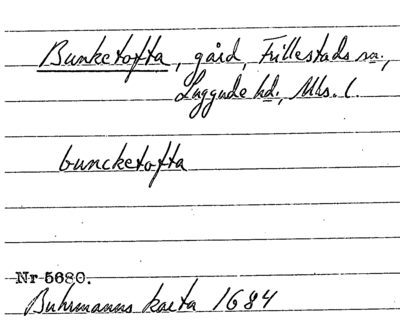 Bunketofta, gård, Frillestads sn.,
Luggude hd., Mls. l.
buncketofta
Nr 5680.
Buhrmanns karta 1684